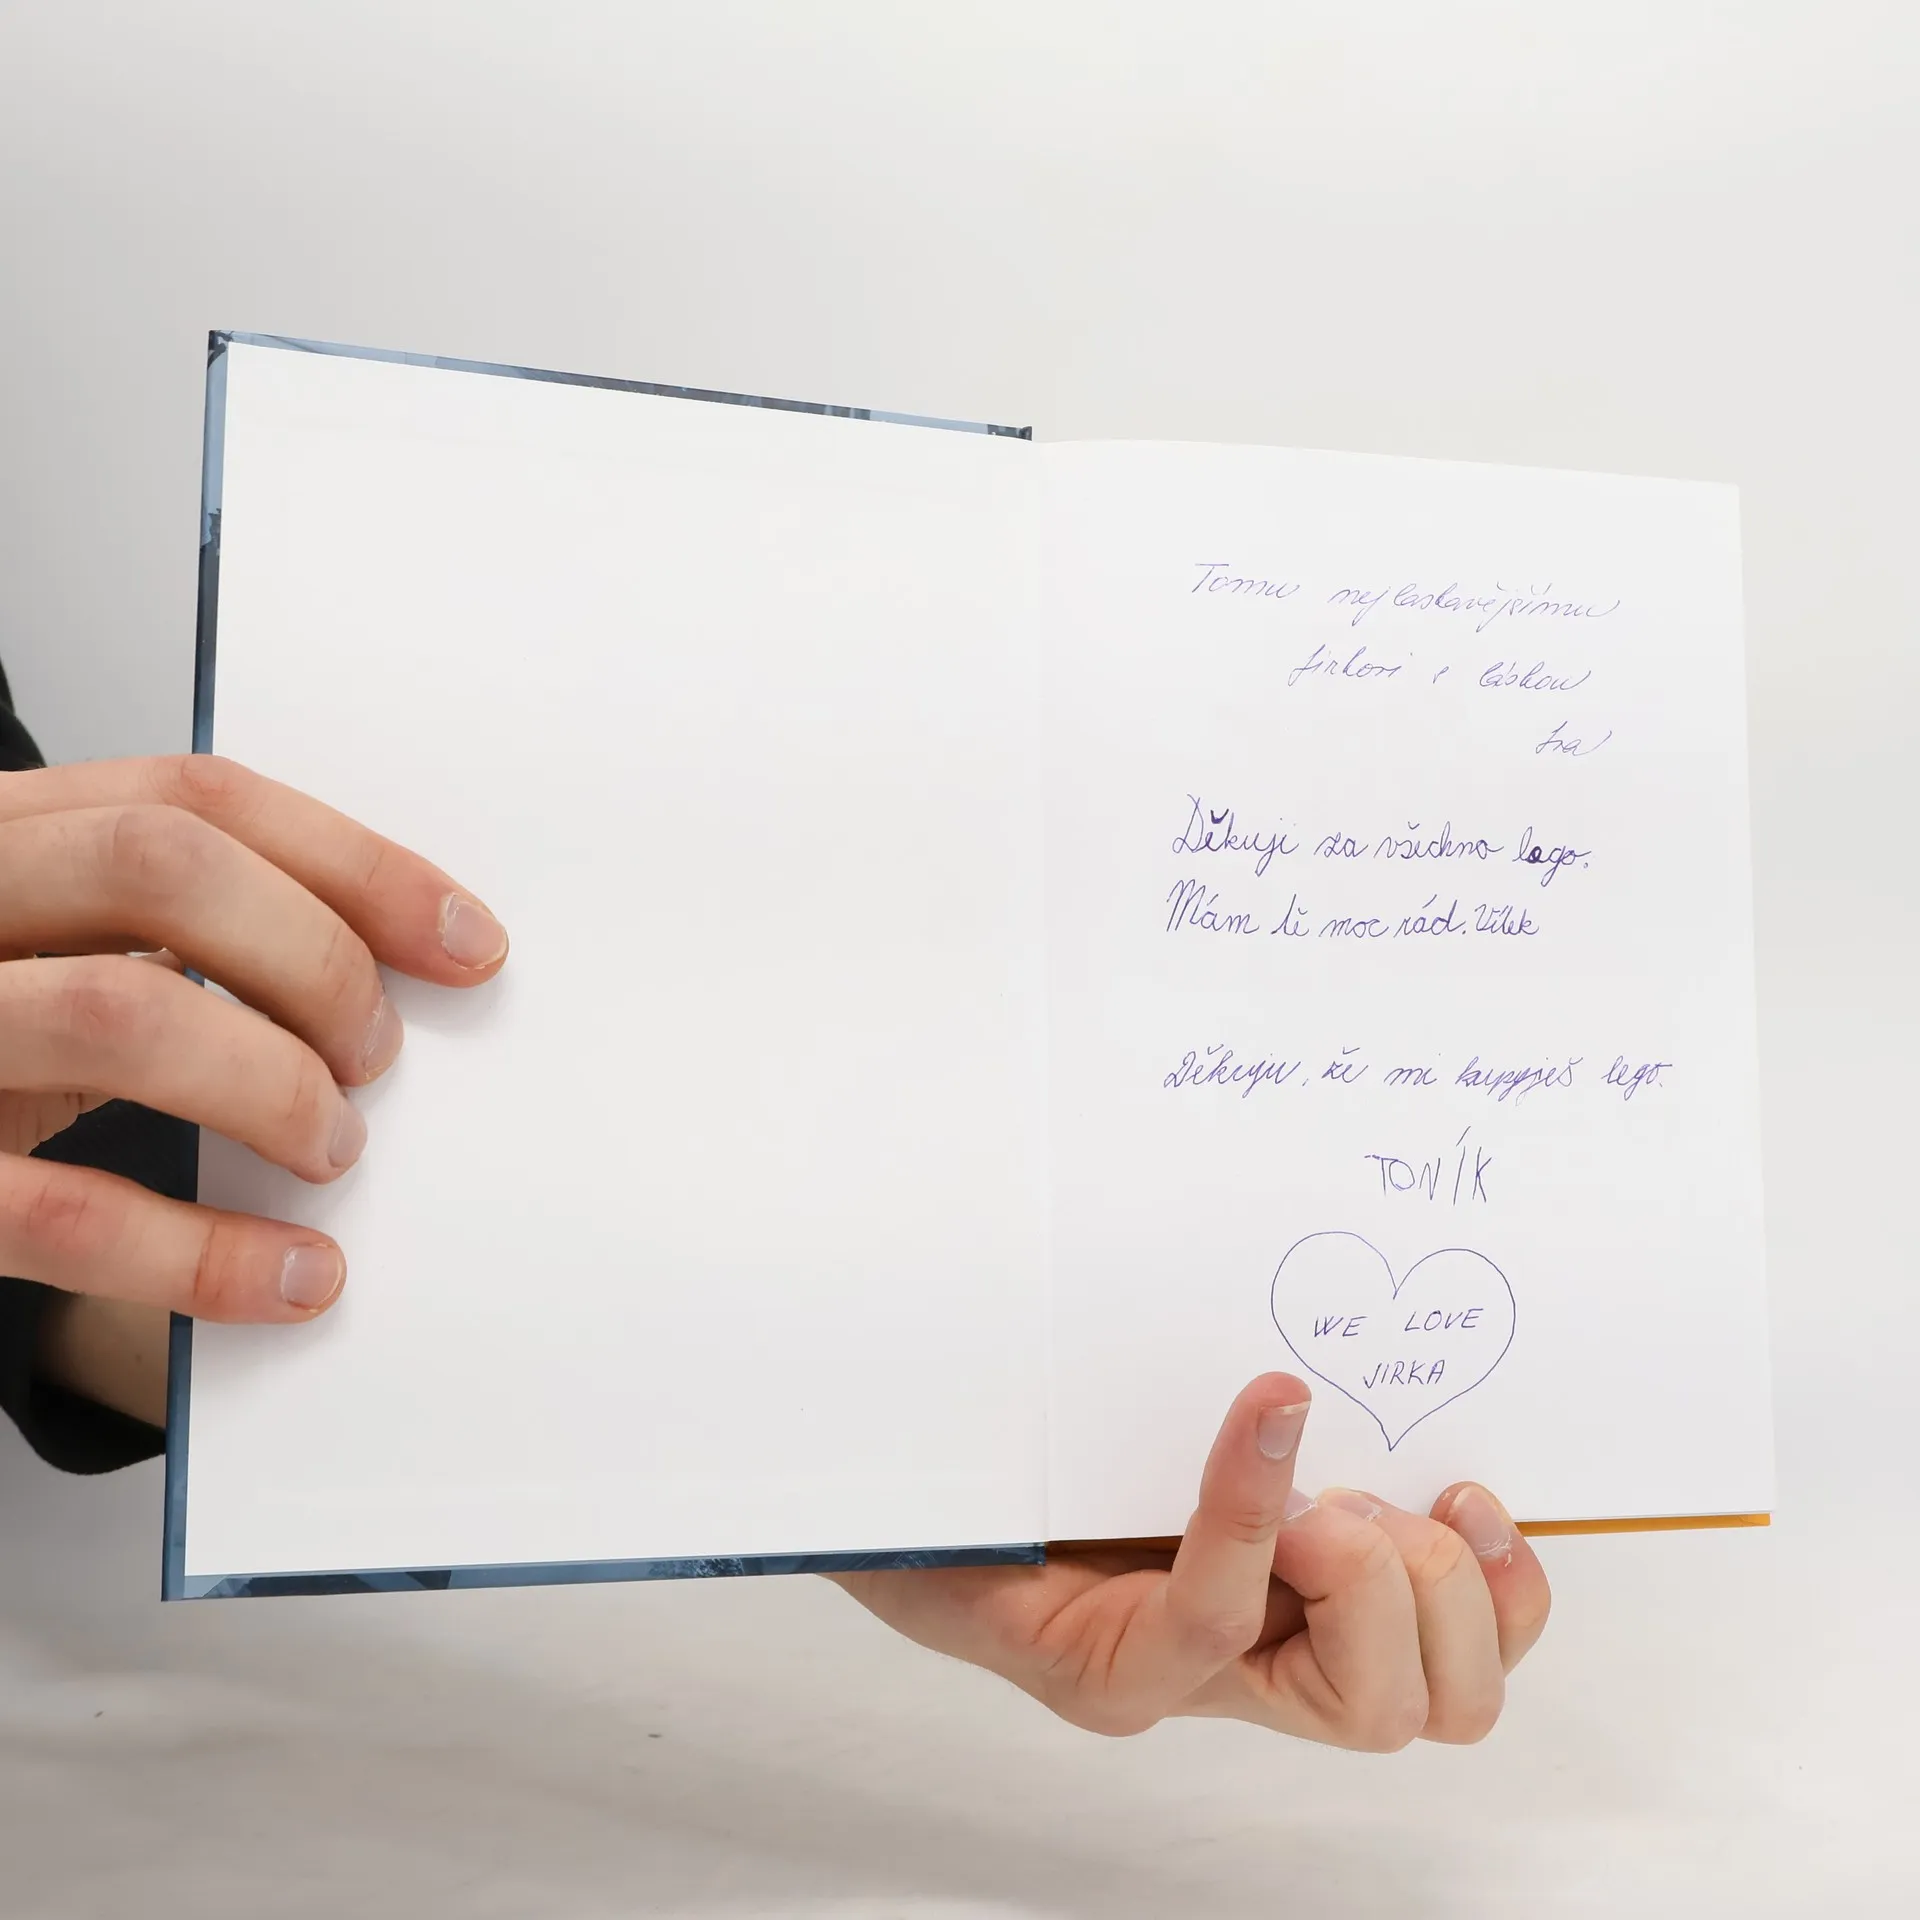 Tomu nejlaskavějšímu
Jirkovi s láskou
Iva
Děkuji za všechno lego.
Mám tě moc rád. Vítek
Děkuju, že mi kupuješ lego.
TONÍK
WE LOVE
JIRKA